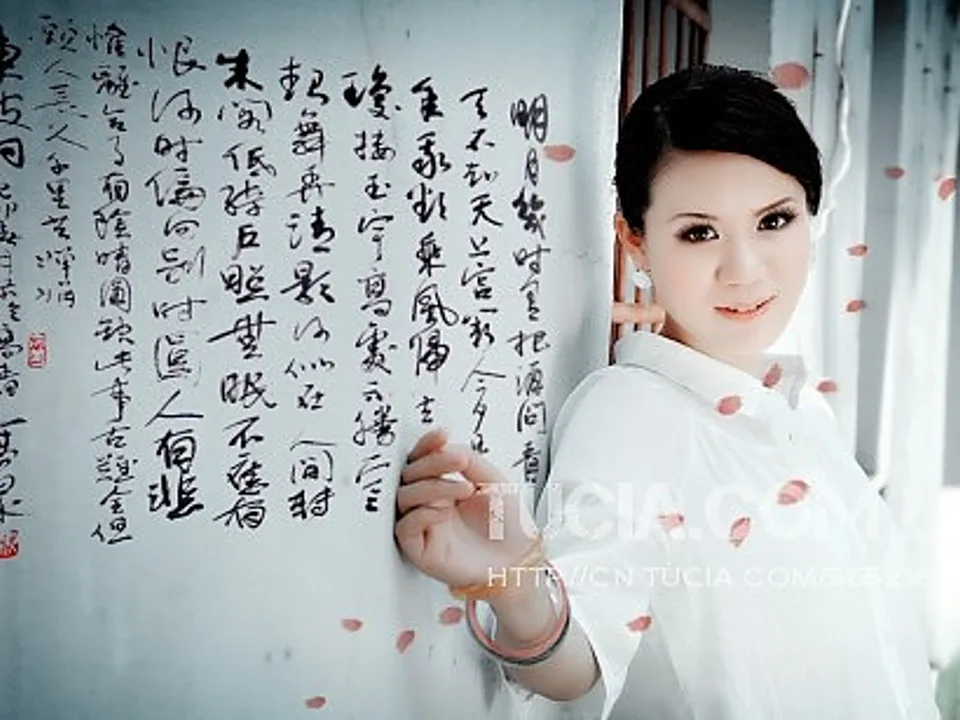 明月幾时有把酒问青
天不知天上宫阙今夕是
年我欲乘風歸去
瓊楼玉宇高處不勝寒
起舞弄清影何似在人间转
朱阁低绮户照無眠不應有
恨何时偏向别时圓人有悲
歡離合月有陰晴圓缺此事古難全但
願人長久千里共嬋娟
東坡词
TUCIA.COM
HTTP://CN.TUCIA.COM/